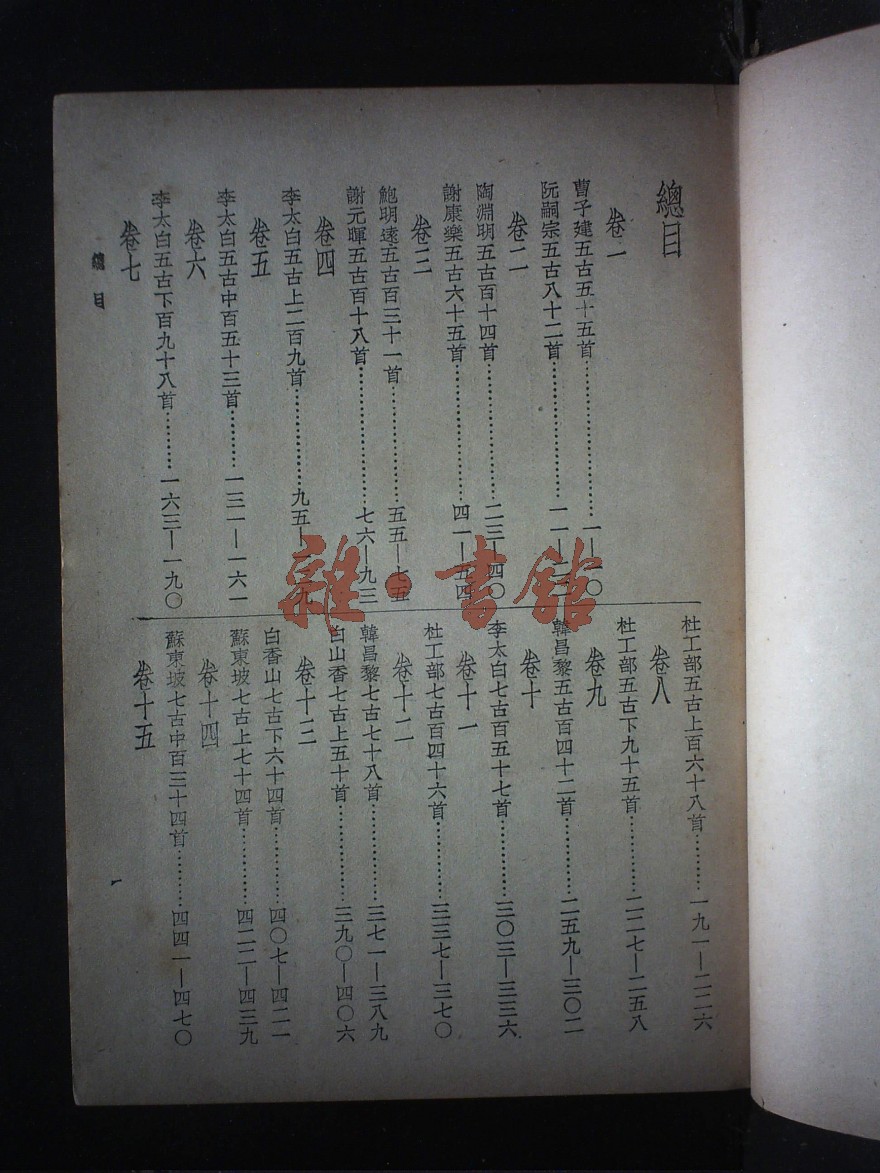 總目
卷一
曹子建五古五十五首……………一—一〇
阮嗣宗五古八十二首……………一一—
卷二
陶淵明五古百十四首……………二三—四〇
謝康樂五古六十五首……………四一—五四
卷三
鮑明遠五古百三十一首……………五五—七五
謝元暉五古百十八首……………七六—九三
卷四
李太白五古上二百九首……………九五—
卷五
李太白五古中百五十三首………一三一—一六一
卷六
李太白五古下百九十八首………一六三—一九〇
卷七
杜工部五古上百六十八首………一九一—二二六
卷八
杜工部五古下九十五首…………二二七—二五八
卷九
韓昌黎五古百四十二首…………二五九—三〇二
卷十
李太白七古百五十七首…………三〇三—三三六
卷十一
杜工部七古百四十六首…………三三七—三七〇
卷十二
韓昌黎七古七十八首……………三七一—三八九
白山香七古上五十首……………三九〇—四〇六
卷十三
白香山七古下六十四首…………四〇七—四二一
蘇東坡七古上七十四首…………四二二—四三九
卷十四
蘇東坡七古中百三十四首………四四一—四七〇
卷十五
總目
一
雜·書館